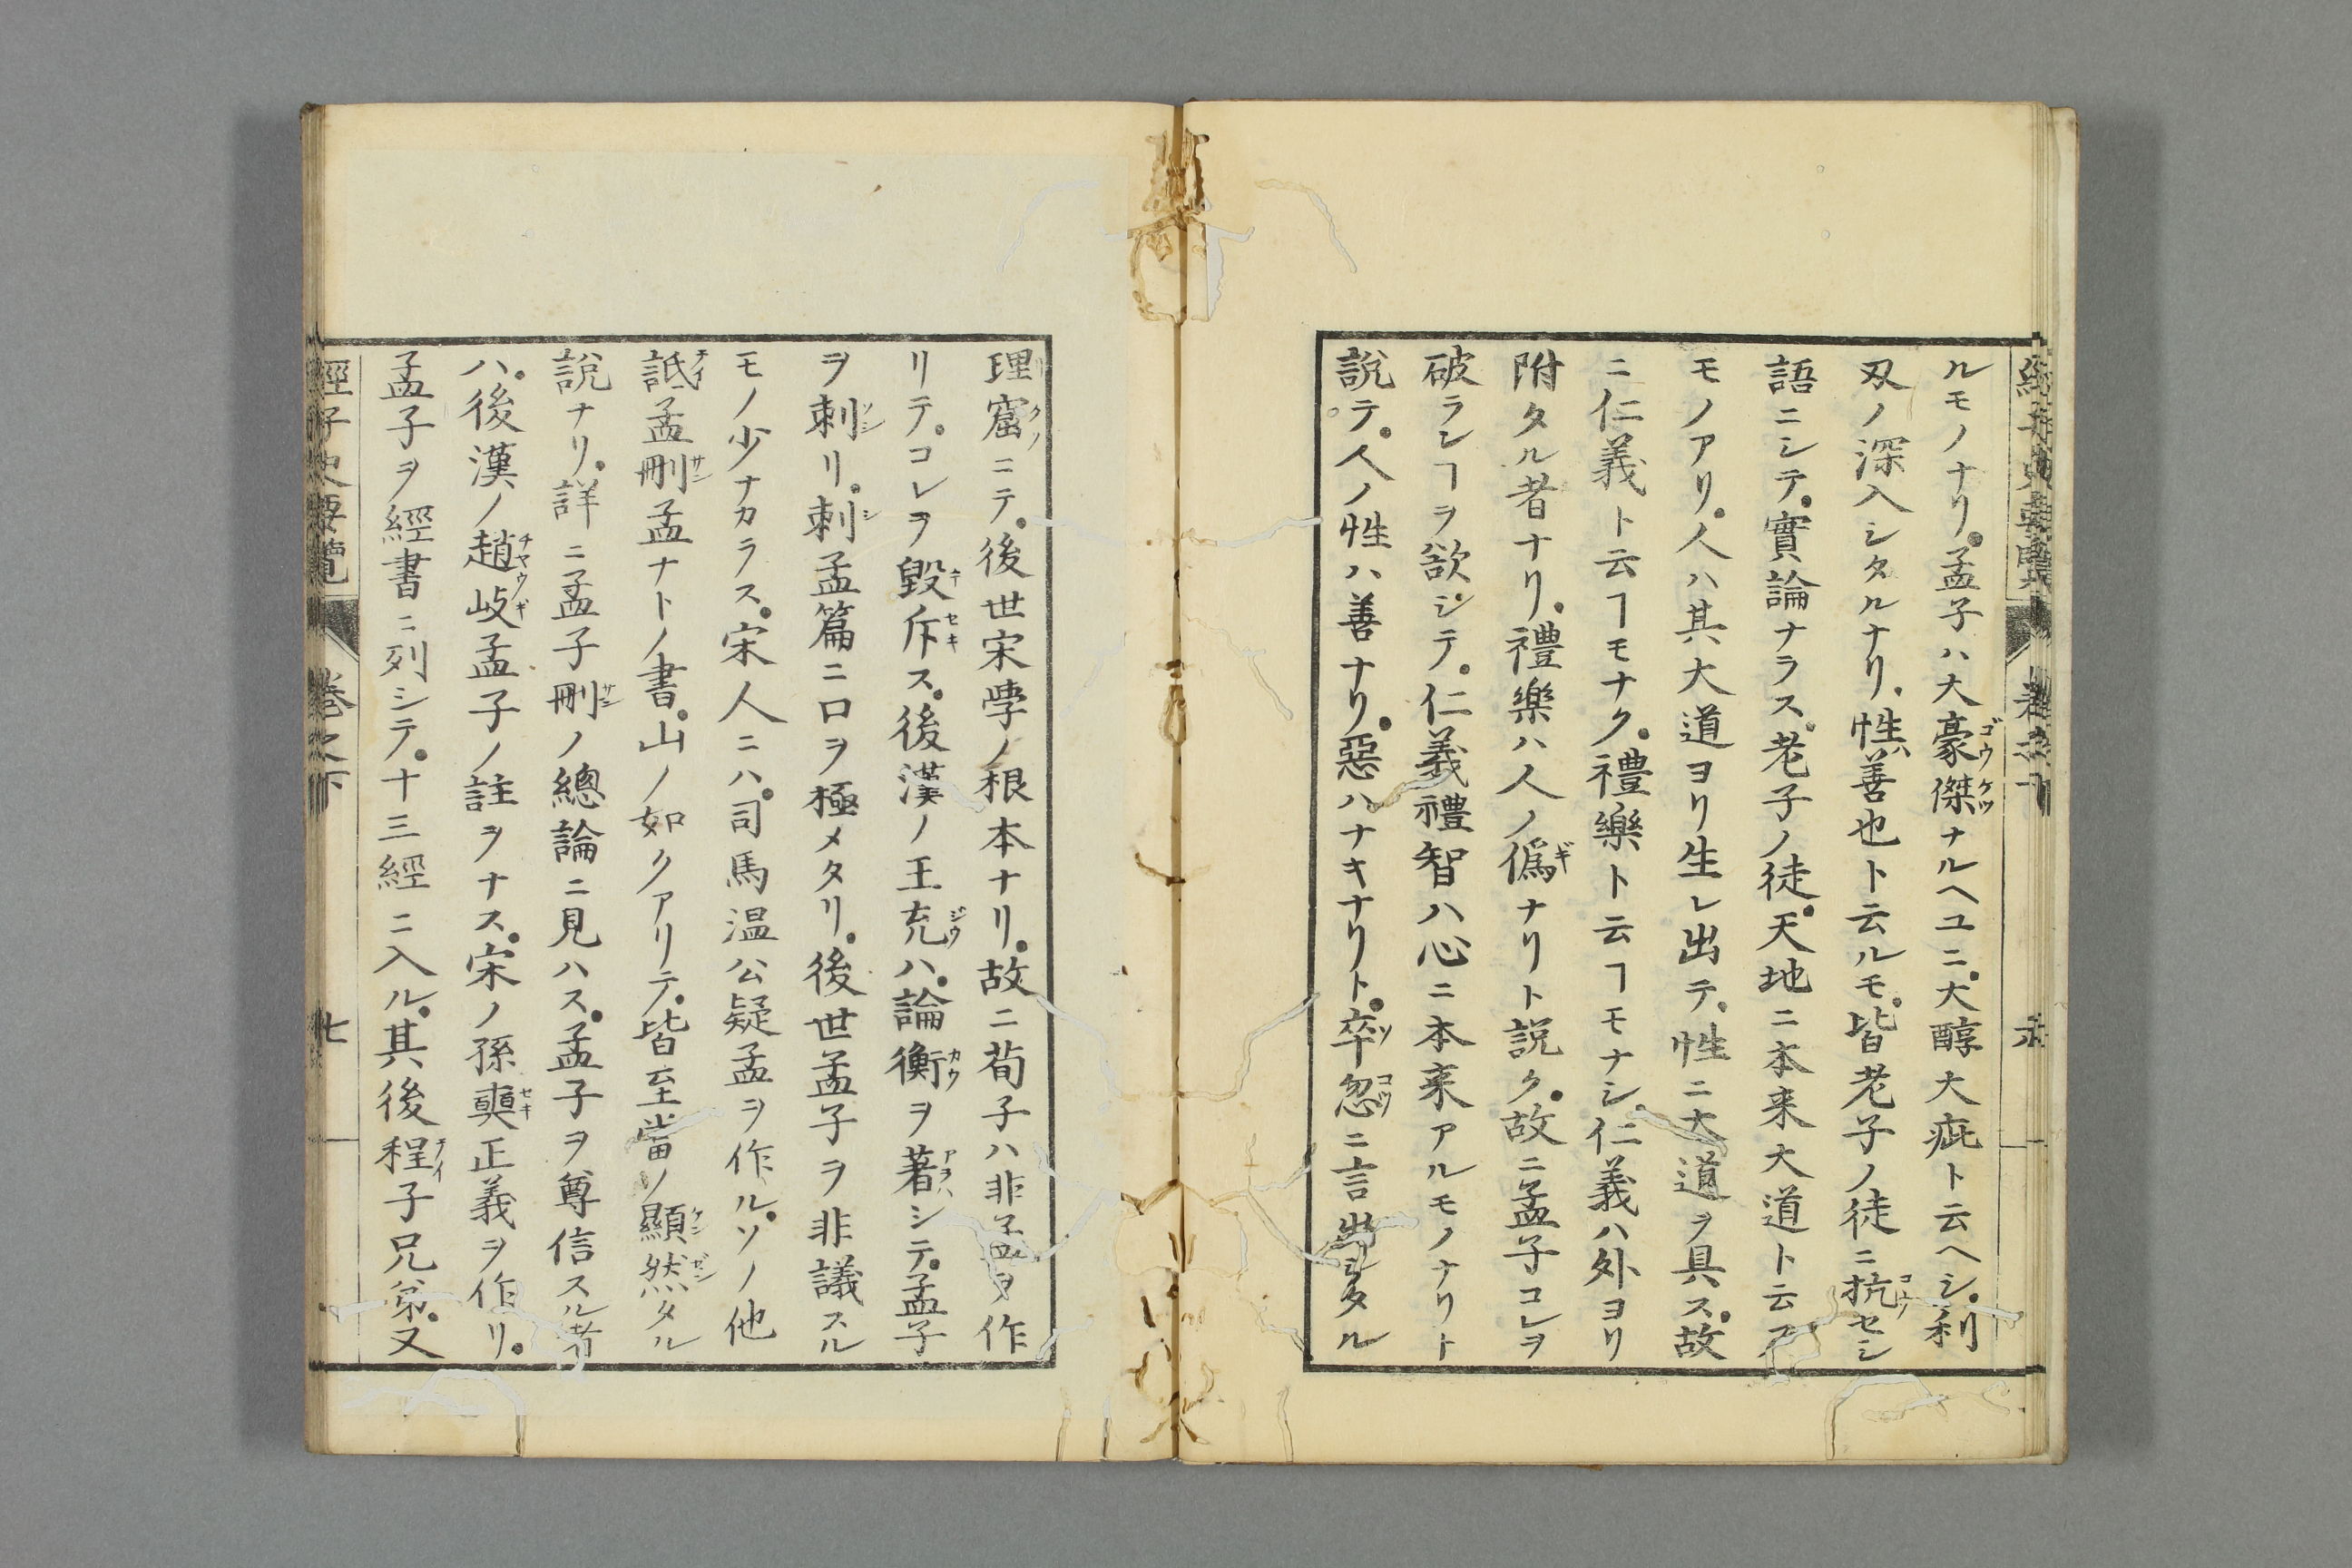 ルモノナリ。孟子ハ大豪傑ナルヘユニ。大醇大疵ト云ヘシ。利
刄ノ深入シタルナリ。性ハ善也ト云ルモ。皆老子ノ徒ニ抗セシ
語ニシテ。實論ナラス。老子ノ徒。天地ニ本来大道ト云
モノアリ。人ハ其大道ヨリ生レ出テ。性ニ大道ヲ具ス。故
ニ仁義ト云ヿモナク。禮樂ト云ヿモナシ。仁義ハ外ヨリ
附タル者ナリ。禮樂ハ人ノ僞ナリト説ク。故ニ孟子コレヲ
破ランヿヲ欲シテ。仁義禮智ハ心ニ本来アルモノナリト
説テ。人ノ性ハ善ナリ。惡ハナキナリト。卒忽ニ言出シタル
理窟ニテ。後世宋学ノ根本ナリ。故ニ荀子ハ非孟ヲ作
リテ。コレヲ毀斥ス。後漢ノ王充ハ。論衡ヲ著シテ。孟子
ヲ刺リ。刺孟篇ニ口ヲ極メタリ。後世孟子ヲ非議スル
モノ少ナカラス。宋人ニハ。司馬温公疑孟ヲ作ル。ソノ他
詆孟刪孟ナトノ書。山ノ如クアリテ。皆至當ノ顯然タル
説ナリ。詳ニ孟子刪ノ總論ニ見ハス。孟子ヲ尊信スル者
ハ。後漢ノ趙岐孟子ノ註ヲナス。宋ノ孫奭正義ヲ作リ。
孟子ヲ經書ニ列シテ。十三經ニ入ル。其後程子兄弟。又
經子史要覽 卷之下 七